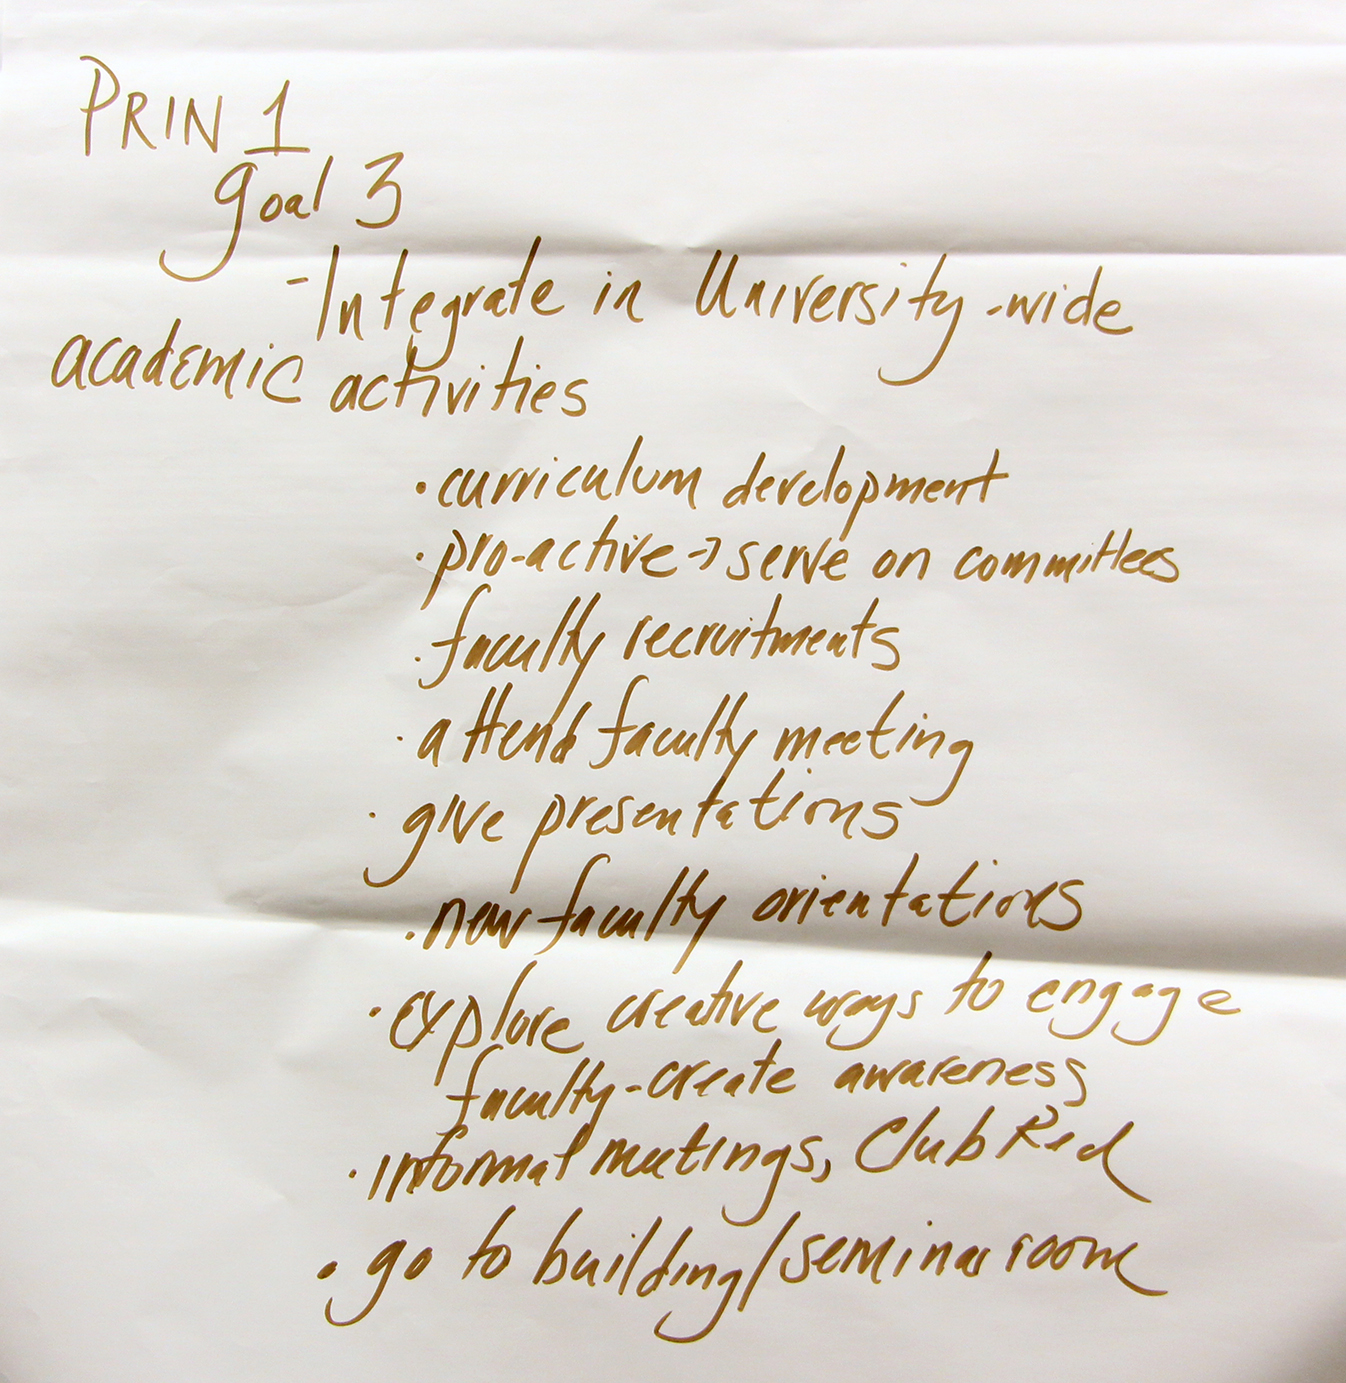 PRIN 1
goal 3
- Integrate in University-wide
academic activities
• curriculum development
• pro-active → serve on committees
• faculty recruitments
• attend faculty meeting
• give presentations
• new faculty orientations
• explore creative ways to engage
faculty - create awareness
• informal meetings, Club Red
• go to building/seminar room